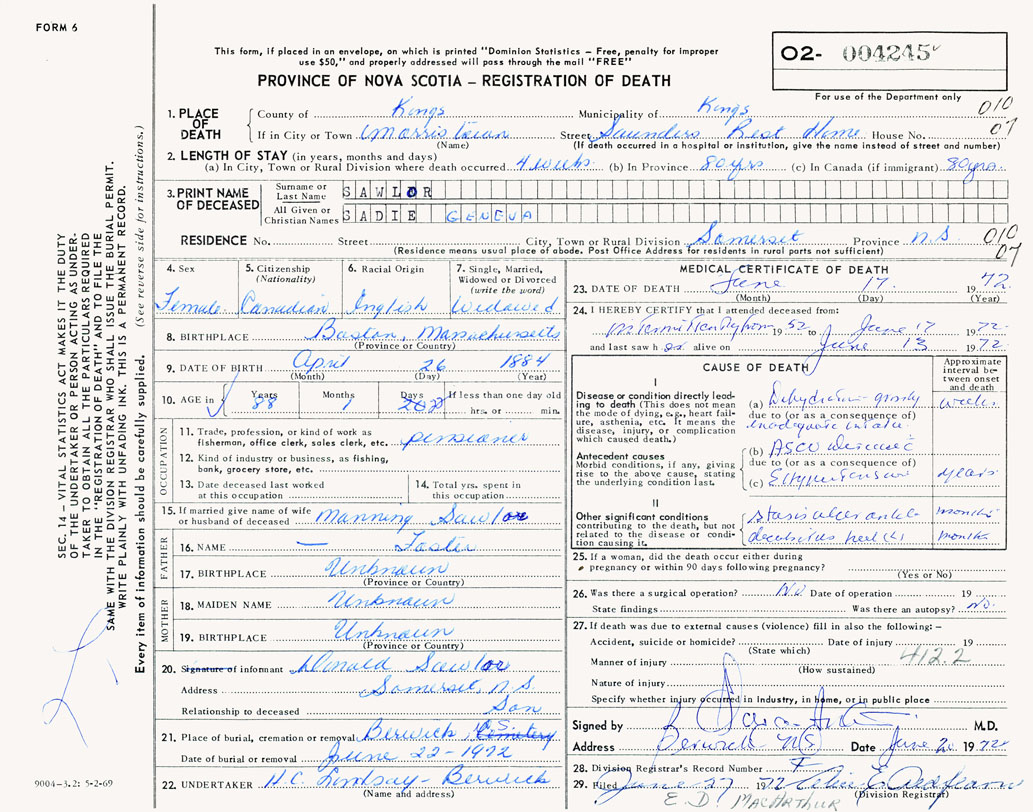 FORM 6
This form, if placed in an envelope, on which is printed "Dominion Statistics – Free, penalty for improper
use $50," and properly addressed will pass through the mail "FREE"
PROVINCE OF NOVA SCOTIA – REGISTRATION OF DEATH
O2- 004245
For use of the Department only
010
07
1. PLACE OF DEATH
County of Kings Municipality of Kings
If in City or Town Morristown Street Saunders Rest Home House No.
(Name) (If death occurred in a hospital or institution, give the name instead of street and number)
2. LENGTH OF STAY (in years, months and days)
(a) In City, Town or Rural Division where death occurred 4 weeks (b) In Province 80 yrs (c) In Canada (if immigrant) 80 yrs.
3. PRINT NAME OF DECEASED
Surname or Last Name SAWLOR
All Given or Christian Names SADIE GENEVA
RESIDENCE No. Street City, Town or Rural Division Somerset Province N.S. 010
(Residence means usual place of abode. Post Office Address for residents in rural parts not sufficient) 07
4. Sex Female
5. Citizenship (Nationality) Canadian
6. Racial Origin English
7. Single, Married, Widowed or Divorced (write the word) Widowed
8. BIRTHPLACE Boston, Massachusetts
(Province or Country)
9. DATE OF BIRTH April 26 1884
(Month) (Day) (Year)
10. AGE in Years 88 Months 1 Days If less than one day old
hrs. or min.
OCCUPATION
11. Trade, profession, or kind of work as
fisherman, office clerk, sales clerk, etc. pensioner
12. Kind of industry or business, as fishing,
bank, grocery store, etc.
13. Date deceased last worked
at this occupation
14. Total yrs. spent in
this occupation
15. If married give name of wife
or husband of deceased Manning Sawlor
FATHER
16. NAME — Foster
17. BIRTHPLACE Unknown
(Province or Country)
MOTHER
18. MAIDEN NAME Unknown
19. BIRTHPLACE Unknown
(Province or Country)
20. Signature of informant Donald Sawlor
Address Somerset, N.S.
Relationship to deceased Son
21. Place of burial, cremation or removal Berwick Cemetery
Date of burial or removal June 22-1972
22. UNDERTAKER H.C. Lindsay - Berwick
(Name and address)
MEDICAL CERTIFICATE OF DEATH
23. DATE OF DEATH June 17 1972
(Month) (Day) (Year)
24. I HEREBY CERTIFY that I attended deceased from:
1952 to June 17 1972
and last saw her alive on June 13 1972
CAUSE OF DEATH
Approximate interval between onset and death
I
Disease or condition directly leading to death (This does not mean the mode of dying, e.g., heart failure, asthenia, etc. It means the disease, injury, or complication which caused death.)
(a) Dehydration - grossly weeks
due to (or as a consequence of)
inadequate intake
Antecedent causes
Morbid conditions, if any, giving rise to the above cause, stating the underlying condition last.
(b) ASCV disease
due to (or as a consequence of)
(c) Hypertension years
II
Other significant conditions
contributing to the death, but not related to the disease or condition causing it.
stasis ulcer ankle months
decubitus heel months
25. If a woman, did the death occur either during
pregnancy or within 90 days following pregnancy?
(Yes or No)
26. Was there a surgical operation? No Date of operation 19
State findings Was there an autopsy? No.
27. If death was due to external causes (violence) fill in also the following: –
Accident, suicide or homicide? Date of injury 19
(State which)
412.2
Manner of injury
(How sustained)
Nature of injury
Specify whether injury occurred in Industry, in home, or in public place
Signed by M.D.
Address Berwick NS Date June 20 1972
28. Division Registrar's Record Number
29. Filed June 27 1972
(Division Registrar)
E. D. MACARTHUR
SEC. 14 – VITAL STATISTICS ACT MAKES IT THE DUTY
OF THE UNDERTAKER OR PERSON ACTING AS UNDER-
TAKER TO OBTAIN ALL THE PARTICULARS REQUIRED
IN THE "REGISTRATION OF DEATH" AND TO FILE THE
SAME WITH THE DIVISION REGISTRAR WHO SHALL ISSUE THE BURIAL PERMIT.
WRITE PLAINLY WITH UNFADING INK. THIS IS A PERMANENT RECORD.
Every item of information should be carefully supplied. (See reverse side for instructions.)
9004-3.2: 5-2-69